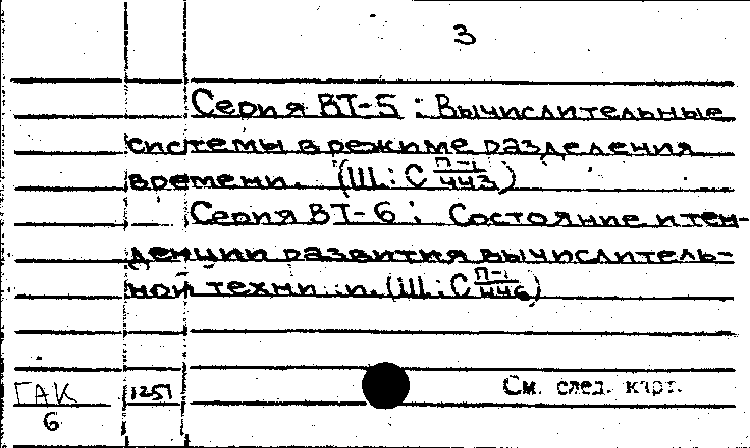 3
Серия ВТ-5 : Вычислительные
системы в режиме разделения
времени. (Ш: С П-1/443)
Серия ВТ-6 : Состояние и тен-
денции развития вычислитель-
ной техники. (Ш: С П-1/446)
ГАК 1257 См. след. карт.
6